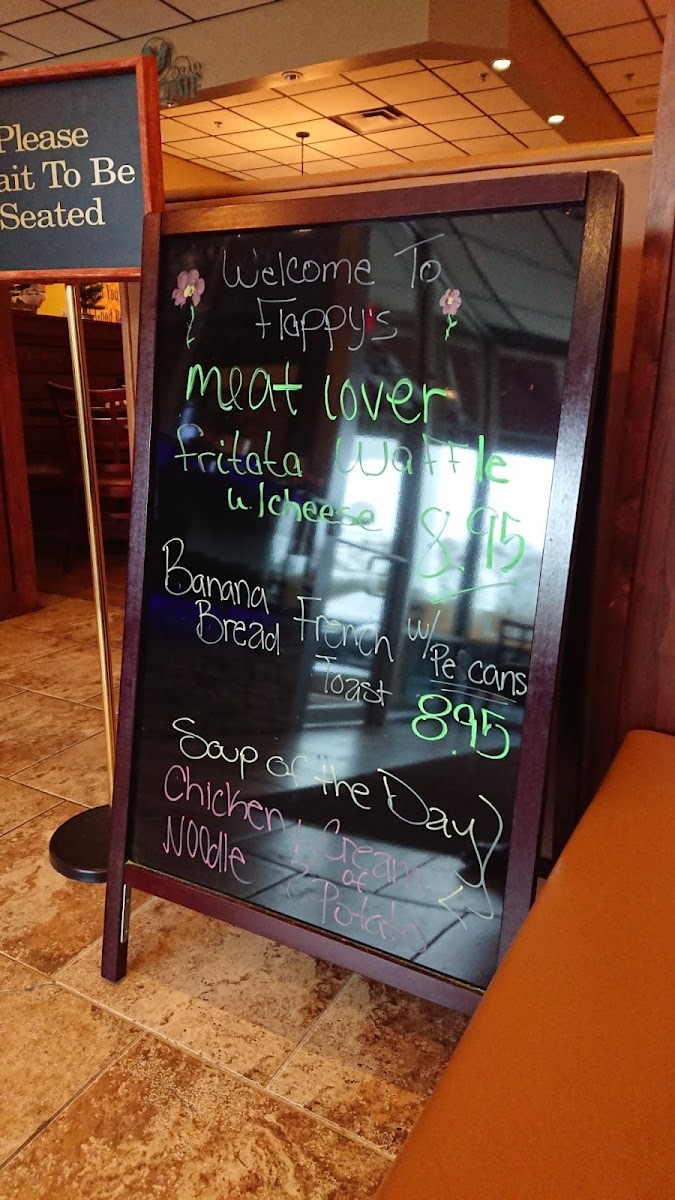 Please
ait To Be
Seated
Welcome To
Flappy's
meat lover
fritata waffle
w/cheese 8.95
Banana
Bread French
Toast
w/
Pecans
8.95
Soup of the Day
Chicken
Noodle
Cream
of
Potato